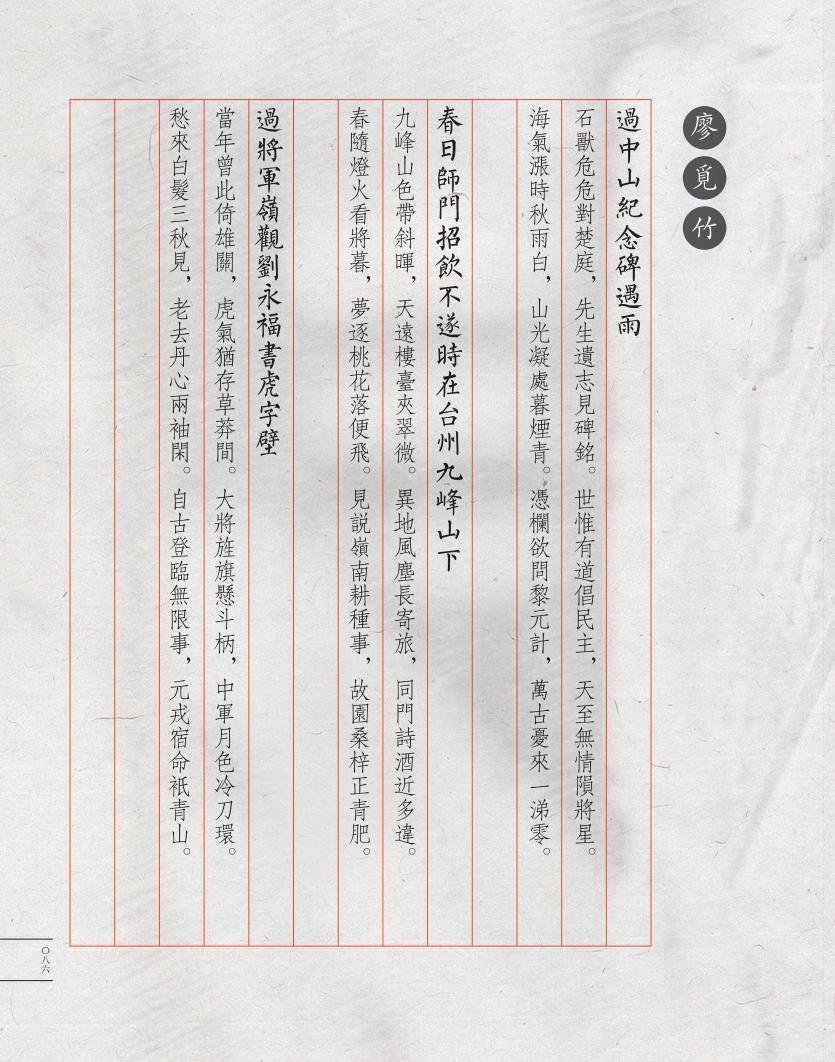 廖覓竹
過中山紀念碑遇雨
石獸危危對楚庭，先生遺志見碑銘。世惟有道倡民主，天至無情隕將星。
海氣漲時秋雨白，山光凝處暮煙青。憑欄欲問黎元計，萬古憂來一涕零。
春日師門招飲不遂時在台州九峰山下
九峰山色帶斜暉，天遠樓臺夾翠微。異地風塵長寄旅，同門詩酒近多違。
春隨燈火看將暮，夢逐桃花落便飛。見説嶺南耕種事，故園桑梓正青肥。
過將軍嶺觀劉永福書虎字壁
當年曾此倚雄關，虎氣猶存草莽間。大將旌旗懸斗柄，中軍月色冷刀環。
愁來白髮三秋見，老去丹心兩袖閑。自古登臨無限事，元戎宿命祇青山。
〇八六